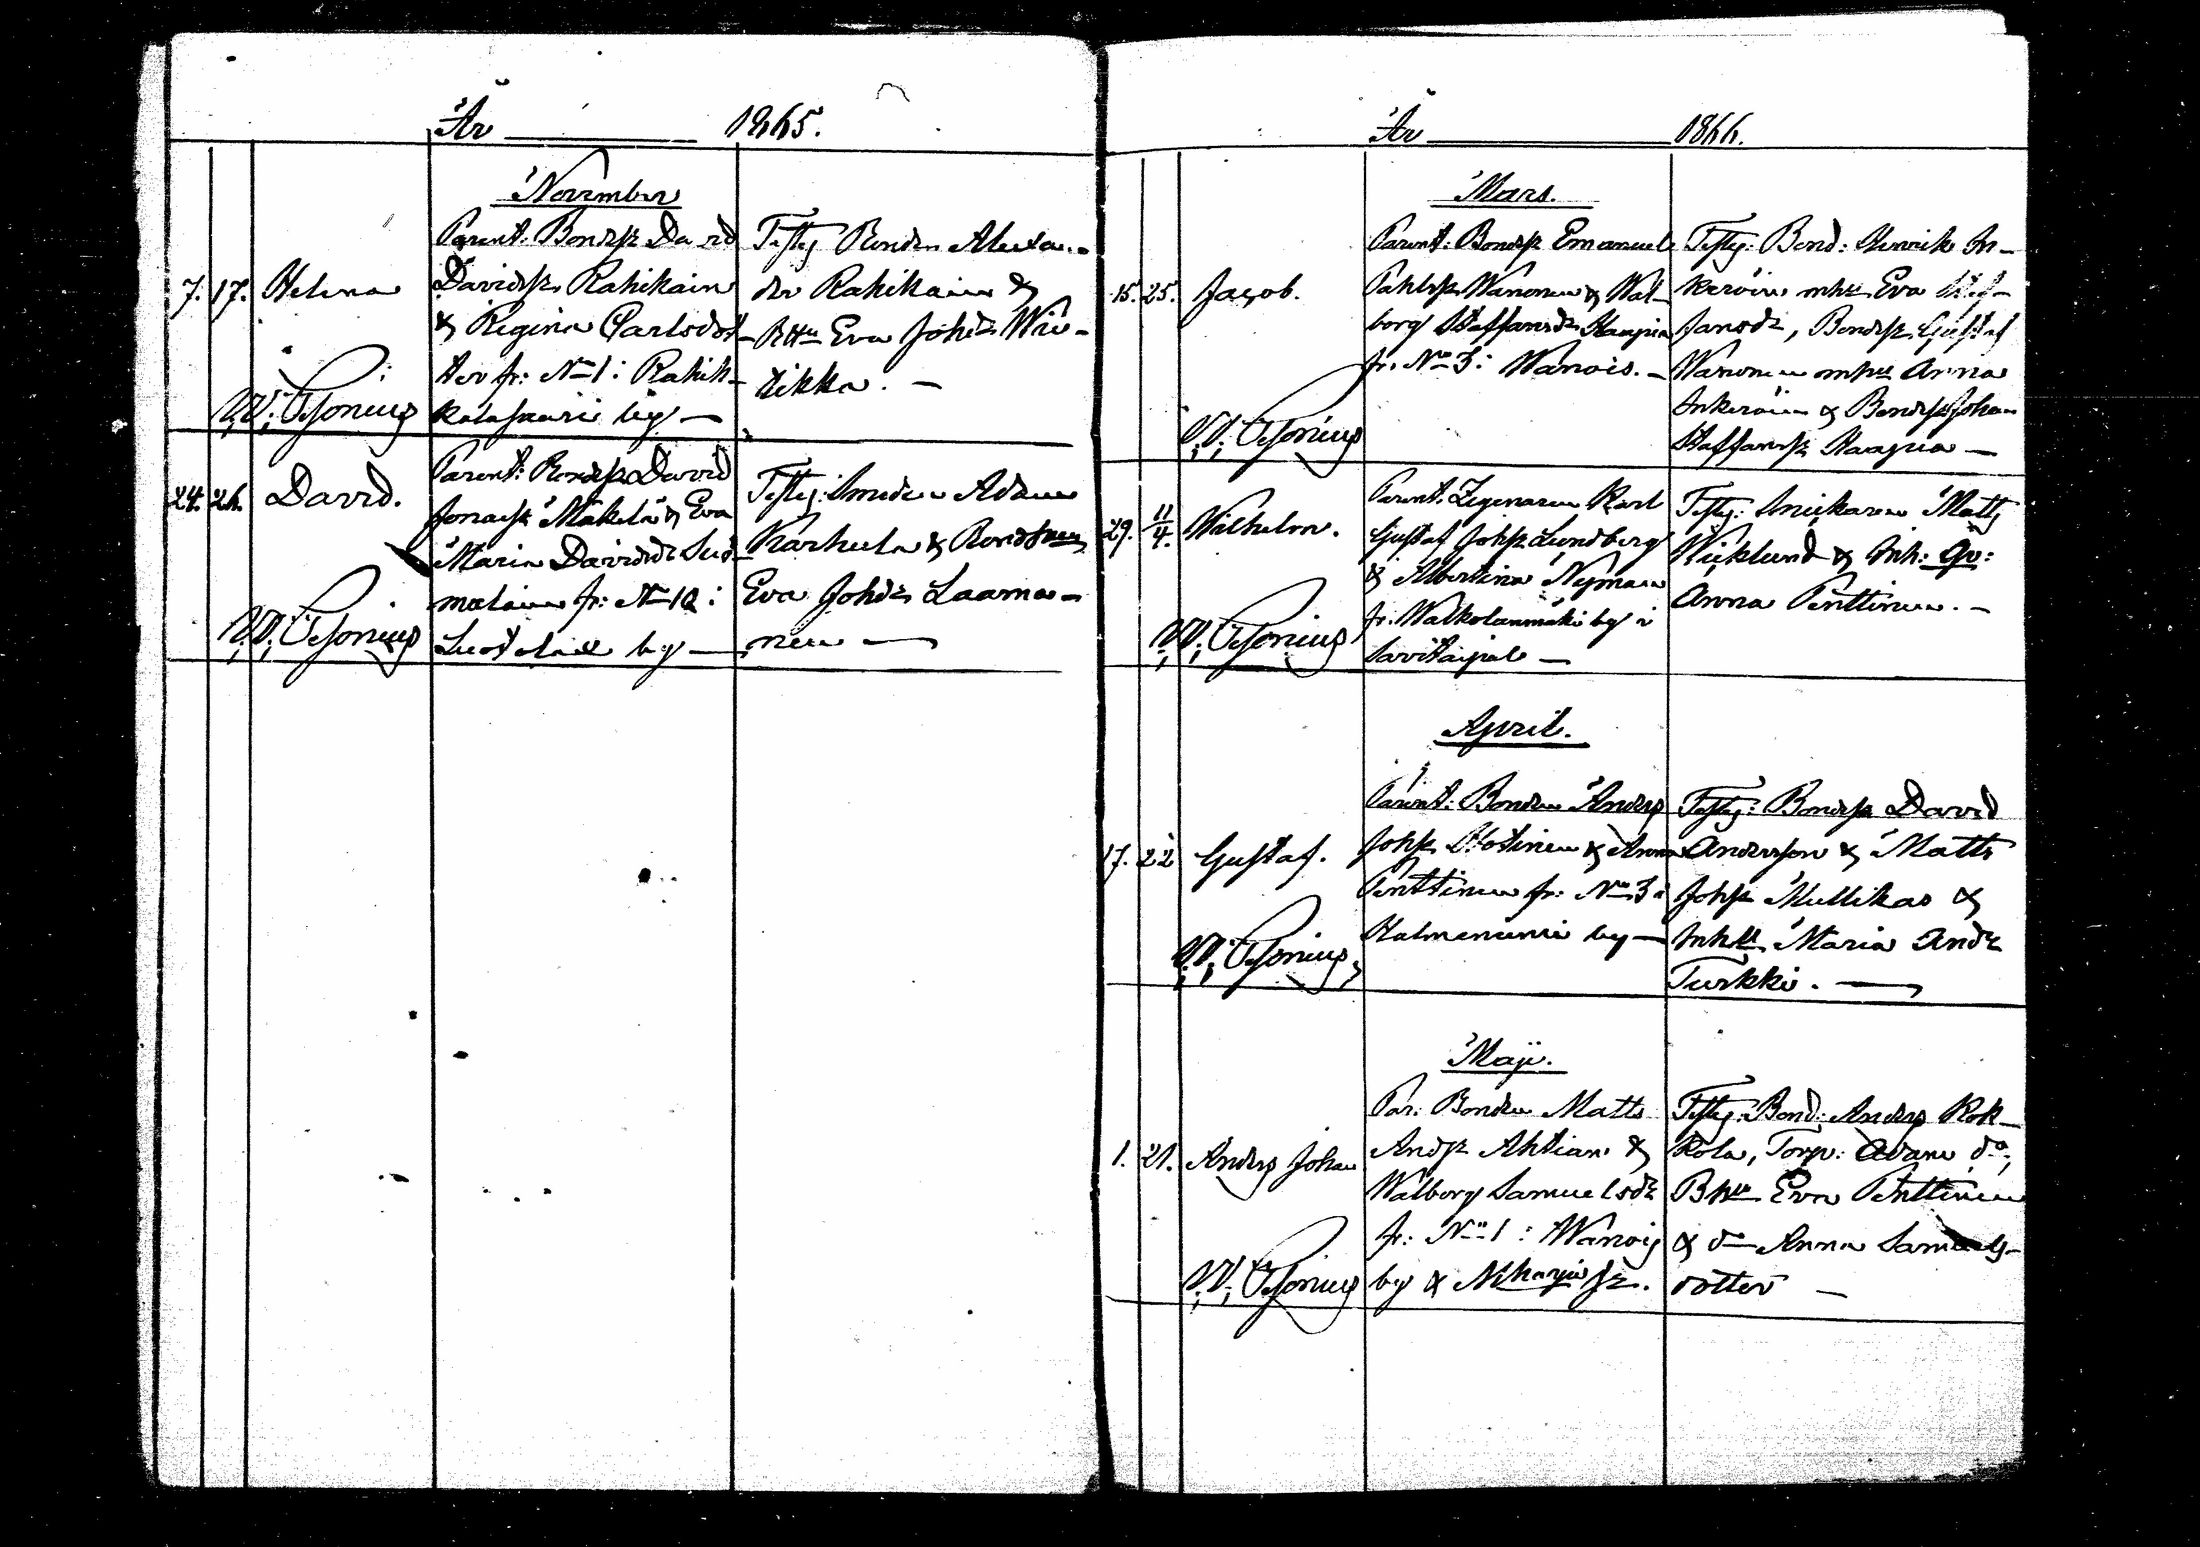 År 1865.
November
7. 17. Helena
Parent: Bondes. David
Davidss. Rahikain
& Regina Carlsdot-
ter fr: No 1: Rahik-
kala by —
Testes: Bonden Alexan-
der Rahikain &
BHu Eva Johdr Wii-
tikka. —
24. 26. David.
Parent: Bondes. David
Jonass. Mäkelä & Eva
Maria Davidsdr
fr: No 12:
by —
Testes: Smeden Adam
Karhula &
Eva Johdr Laama-
nen —
År 1866.
Mars.
15. 25. Jacob.
Parent: Bondes. Emanuel
Pahlss. Wanonen & Wal-
borg Staffansdr Haapia
fr. No 3: Wanois. —
Testes: Bond: Henrik In-
keröin mhu Eva Stef-
fansdr, Bondes. Gustaf
Wanonen mhu Anna
Inkeröin & Bondes. Johan
Staffanss. Haapia —
29. 11/4. Wilhelm.
Parent. Zigenaren Karl
Gustaf Johss. Lundberg
& Albertina Nyman
fr. Walkolanmäki by i
Savitaipale —
Testes: Snickaren Matts
Wicklund & Inh: Qv:
Anna Penttinen. —
April.
17. 22 Gustaf.
Parent: Bonden Anders
Johss. Hotinen & Anna
Penttinen fr: No 3:
by —
Testes: Bondes. David
Andersson & Matts
Johss. Mullikas &
Inhu Maria Andr
Turkki. —
Maji.
1. 21. Anders Johan
Par: Bonden Matts
Andss. Ahtiain &
Walborg Samuelsdr
fr: No 1: Wanois
by &
Testes: Bond: Anders Kok-
kola, Torp: Adam do,
Bhu Eva Penttinen
& do Anna Samuels-
dotter —